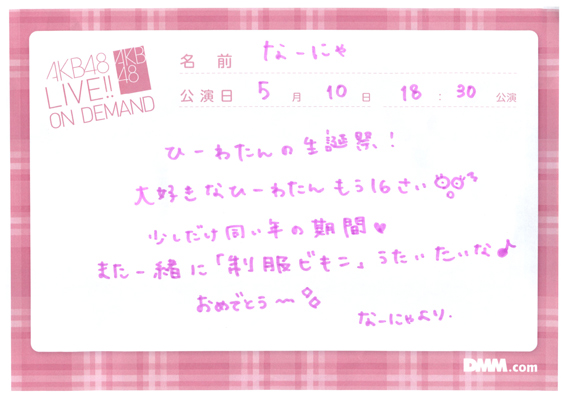 AKB48
LIVE!!
ON DEMAND
AKB
48
名前 なーにゃ
公演日 5月10日 18:30公演
ひーわたんの生誕祭!
大好きなひーわたんもう16さい
少しだけ同い年の期間♥
また一緒に「制服ビキニ」うたいたいな♪
おめでとう〜
なーにゃより.
DMM.com